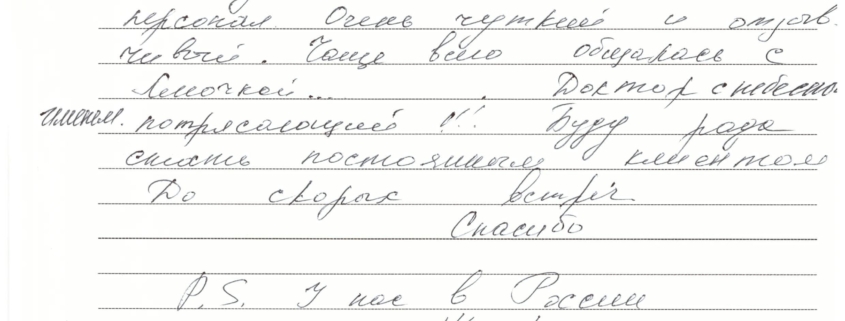 персонал. Очень чуткий и отзыв-
чивый. Чаще всего общалась с
Леночкой... . Доктор с небесно
именем. потрясающий!!! Буду рада
стать постоянным клиентом
До скорых встреч
Спасибо
P.S. У нас в России